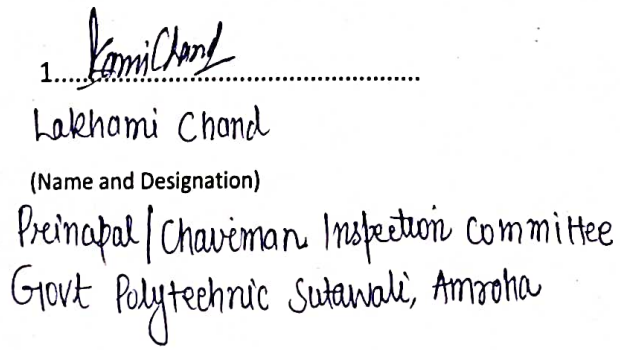 1.....KamiChand..............................
Lakhami Chand
(Name and Designation)
Preinapal/Chaveman Inspection Committee
Govt Polytechnic Sutawali, Amroha